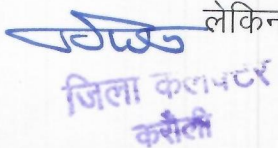 लेकिन
जिला कलक्टर
करौली